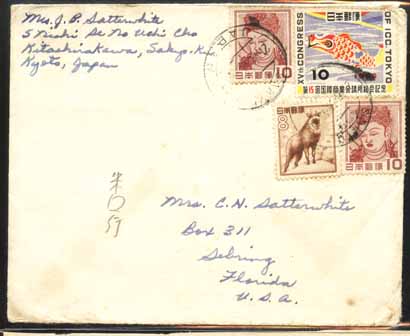 Mrs. J. P. Satterwhite
5 Nishi Se No Uchi Cho
Kitashirakawa, Sakyo-Ku
Kyoto, Japan
日本郵便 10
XVth CONGRESS OF ICC. TOKYO
日本郵便
10
第15回国際商業会議所総会記念
8 日本郵便
日本郵便 10
Mrs. C. H. Satterwhite
Box 311
Sebring
Florida
U.S.A.
米
行